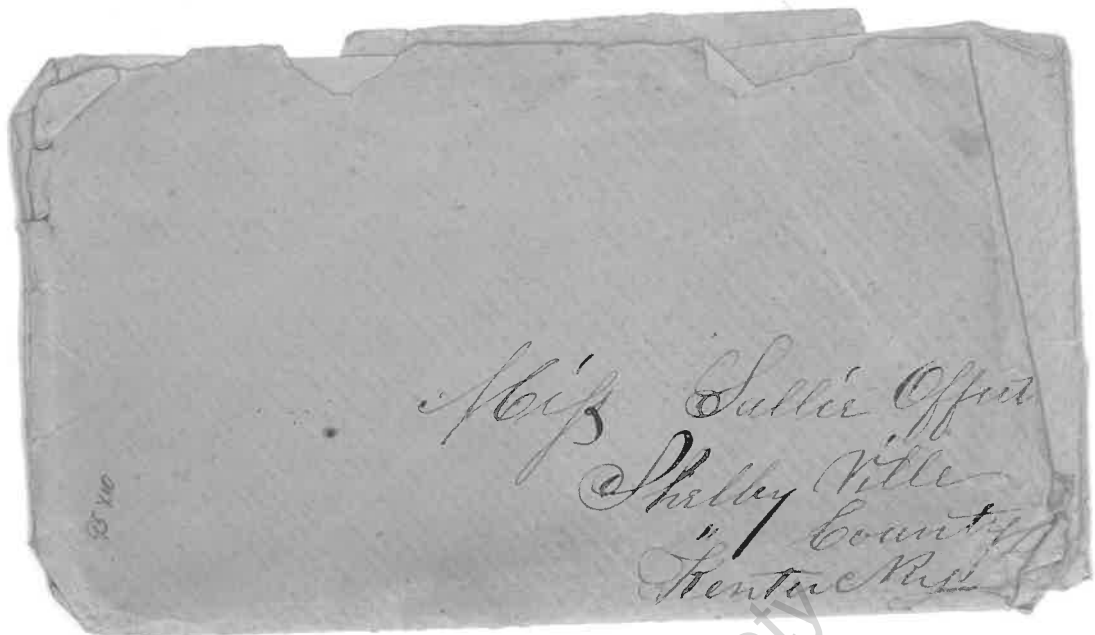 Miss Sallie Offutt
Shelby Ville
" County
Kentucky